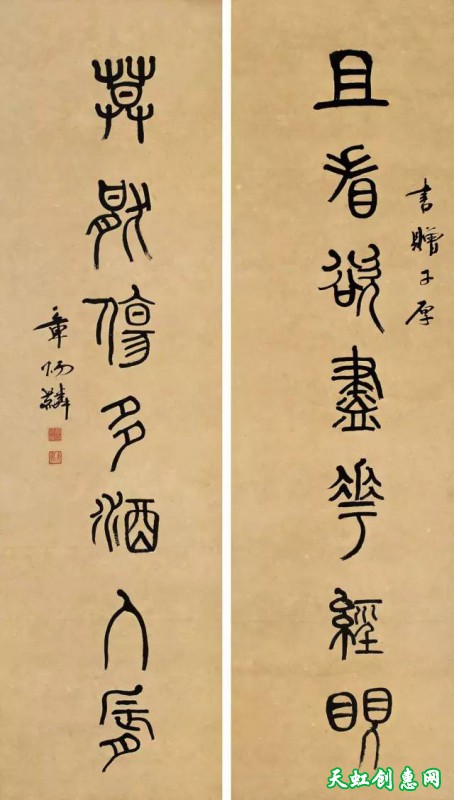 書贈子厚
且看欲盡花經眼
莫猒傷多酒入脣
章炳麟
天虹创惠网